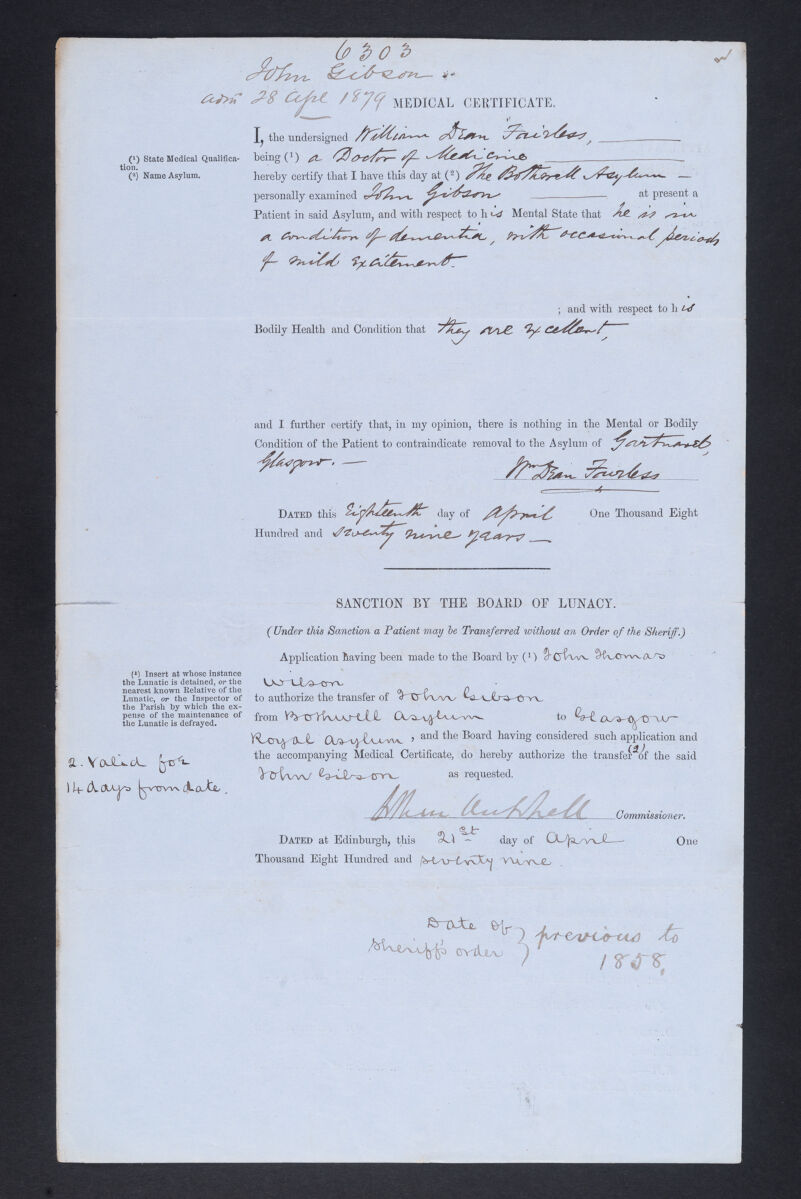 6303
John Gibson
adm 28 Apl 1879
MEDICAL CERTIFICATE.
I, the undersigned William Dean Fairless,
(¹) State Medical Qualifica-
tion.
being (¹) a Doctor of Medicine
(²) Name Asylum.
hereby certify that I have this day at (²) The Bothwell Asylum –
personally examined John Gibson at present a
Patient in said Asylum, and with respect to his Mental State that he is in
a condition of dementia, with occasional periods
of mild excitement.
; and with respect to his
Bodily Health and Condition that they are excellent,
and I further certify that, in my opinion, there is nothing in the Mental or Bodily
Condition of the Patient to contraindicate removal to the Asylum of Gartnavel,
Glasgow. —
Wm Dean Fairless
DATED this Eighteenth day of April One Thousand Eight
Hundred and seventy nine years —
SANCTION BY THE BOARD OF LUNACY.
(Under this Sanction a Patient may be Transferred without an Order of the Sheriff.)
Application having been made to the Board by (¹) John Thomas
Wilson
(¹) Insert at whose instance
the Lunatic is detained, or the
nearest known Relative of the
Lunatic, or the Inspector of
the Parish by which the ex-
pense of the maintenance of
the Lunatic is defrayed.
to authorize the transfer of John Gibson
from Bothwell Asylum to Glasgow
Royal Asylum, and the Board having considered such application and
the accompanying Medical Certificate, do hereby authorize the transfer (2) of the said
John Gibson as requested.
2. Valid for
14 days from date.
Commissioner.
DATED at Edinburgh, this 21st day of April One
Thousand Eight Hundred and seventy nine.
Date of
Sheriff's order } previous to
1858.